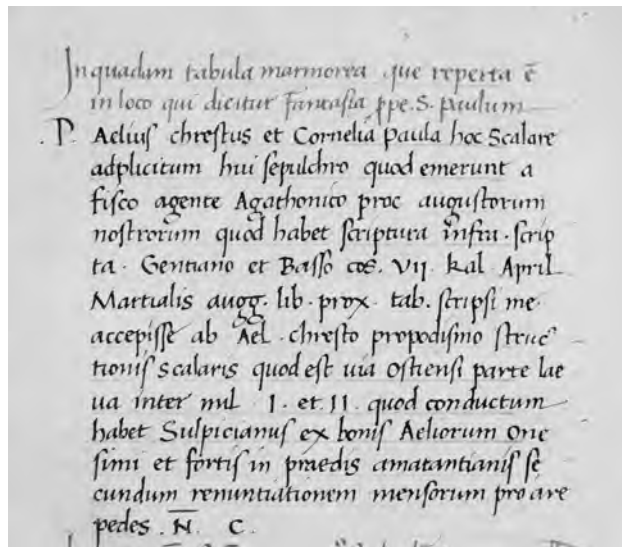 In quadam tabula marmorea que reperta ē
in loco qui dicitur fantasia ppe. S. paulum
. P. Aelius chrestus et Cornelia paula hoc Scalare
adplicitum hui sepulchro quod emerunt a
fisco agente Agathonico proc augustorum
nostrorum quod habet scriptura infra. scrip
ta. Gentiano et Basso cōs. VII. kal April
Martialis augg. lib. prox. tab. scripsi me
accepisse ab Ael. chresto propodismo struc
tionis scalaris quod est uia ostiensi parte lae
ua inter mil I. et. II. quod conductum
habet Sulpicianus ex bonis Aeliorum One
simi et fortis in praedis amatantianis se
cundum renuntiationem mensorum pro are
pedes. N̄. C.